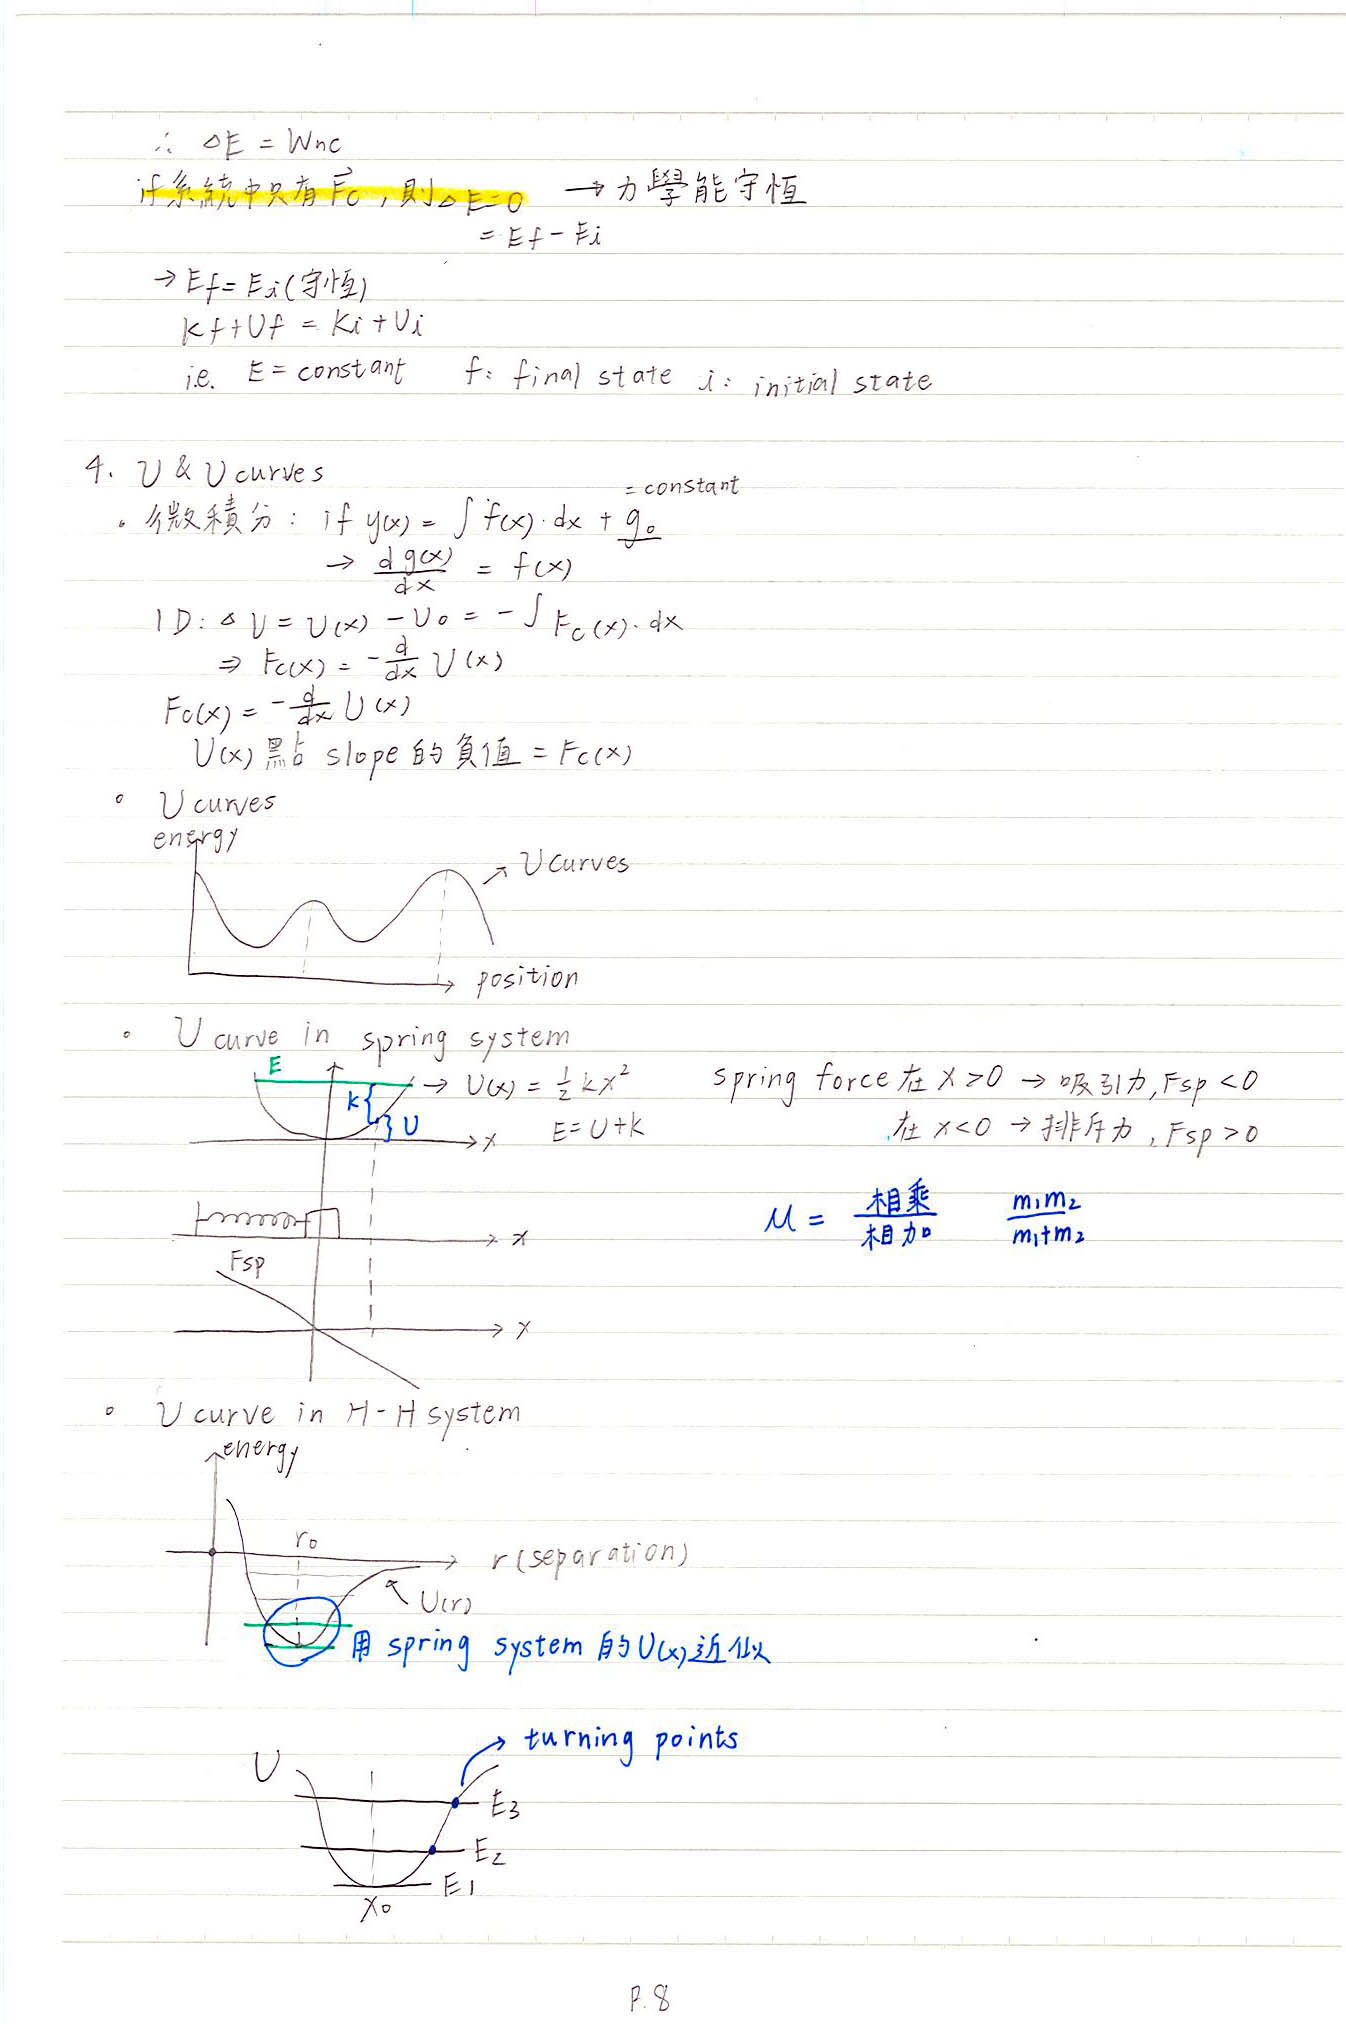 ∴ △E = Wnc
if系統中只有F⃗c, 則△E=0 → 力學能守恆
= Ef - Ei
→ Ef = Ei (守恆)
Kf + Uf = Ki + Ui
i.e. E = constant f: final state i: initial state
4. U & U curves
= constant
。微積分: if y(x) = ∫ f(x)·dx + g₀
→ dg(x)/dx = f(x)
1D: △U = U(x) - U₀ = -∫ Fc(x)·dx
⇒ Fc(x) = -d/dx U(x)
Fc(x) = -d/dx U(x)
U(x)點 slope 的負值 = Fc(x)
。 U curves
energy
U curves
position
。 U curve in spring system
E
K U
→ U(x) = ½kx² spring force 在 x>0 → 吸引力, Fsp<0
x E = U+K 在 x<0 → 排斥力, Fsp>0
μ = 相乘/相加 m₁m₂/m₁+m₂
x
Fsp
x
。 U curve in H-H system
energy
r₀
r (separation)
U(r)
用 spring system 的 U(x) 近似
turning points
U
E3
E2
E1
x₀
P.8